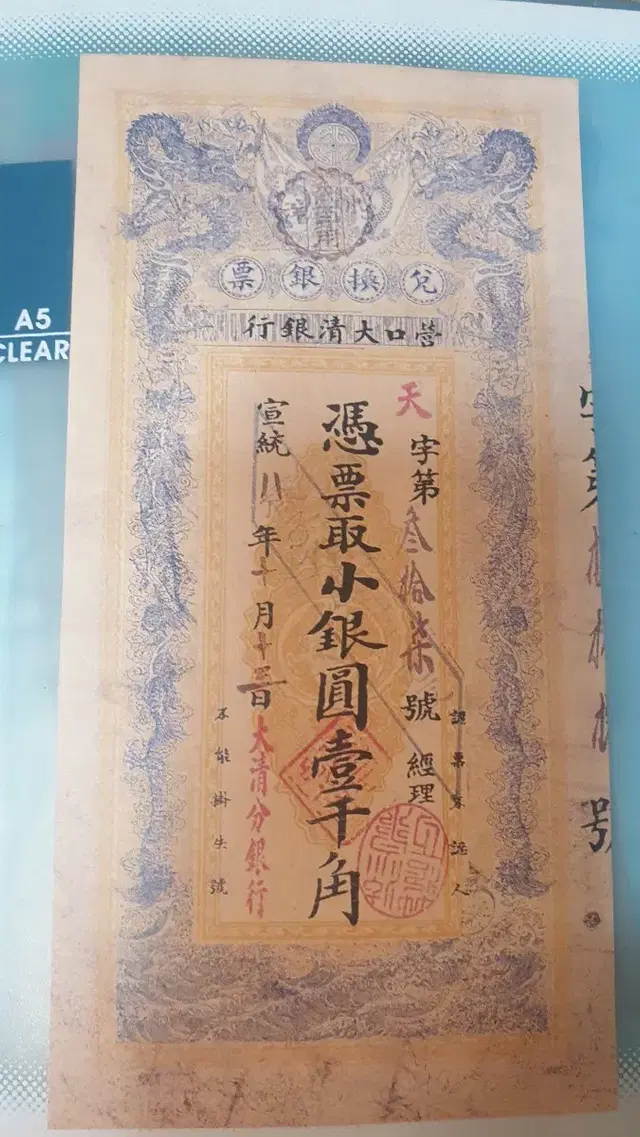 A5
CLEAR
兌換銀票
營口大清銀行
天字第叁拾柒號 經理
認票不認人
憑票取小銀圓壹千角
宣統年十月十三日
大清分銀行
不能掛失號
字第
號